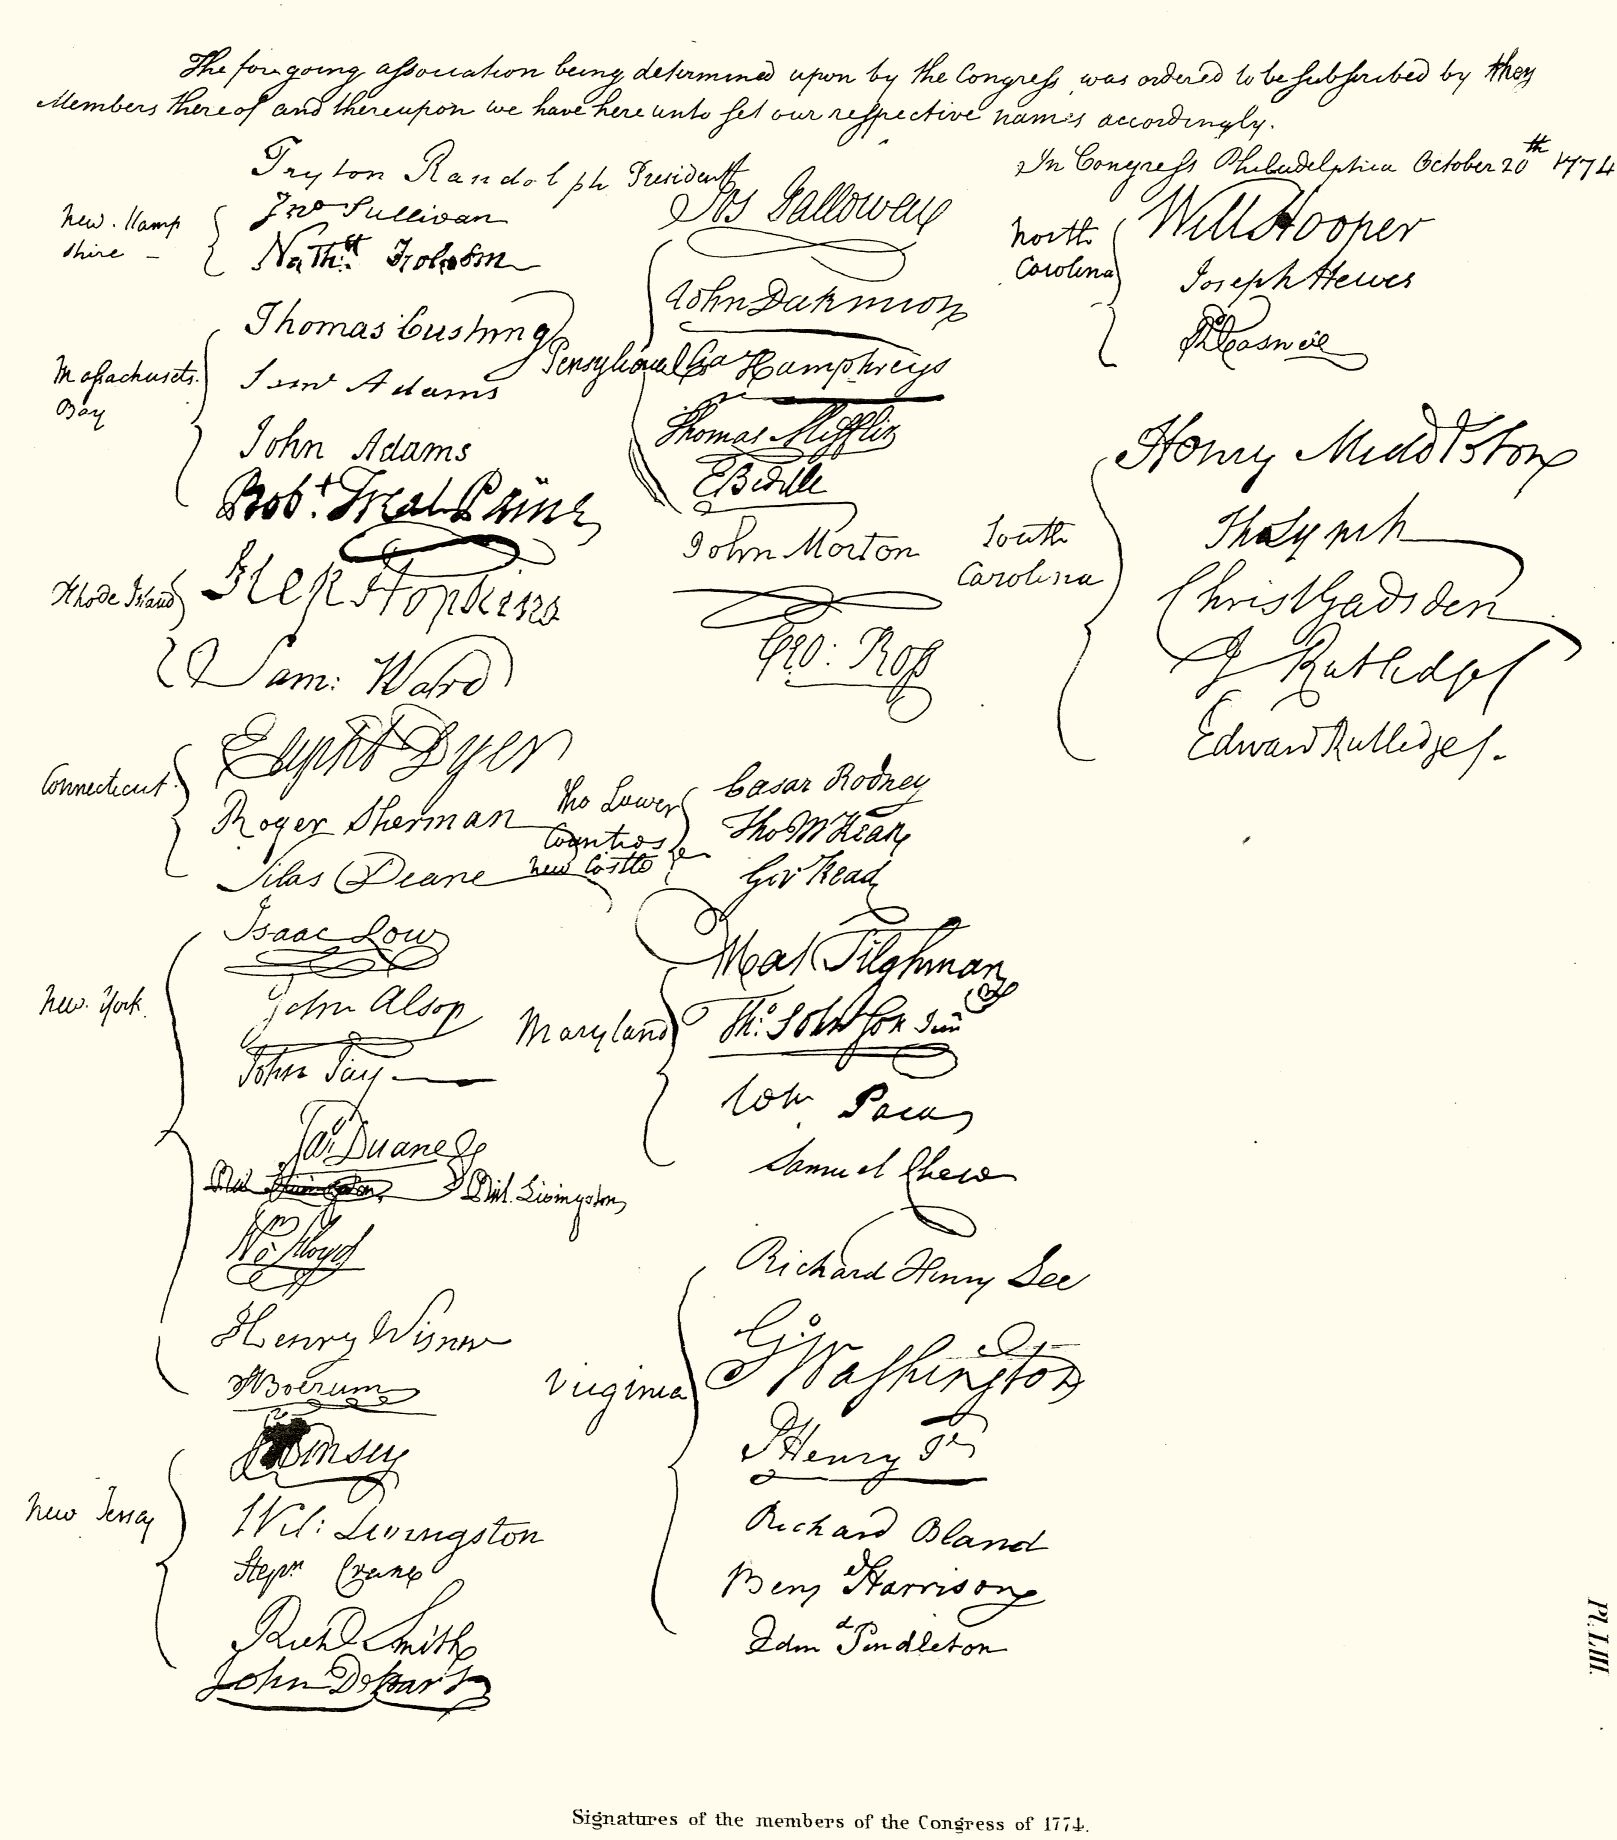 The foregoing association being determined upon by the Congress, was ordered to be subscribed by they
Members thereof and thereupon we have here unto set our respective names accordingly.
In Congress Philadelphia October 20th 1774
Peyton Randolph President
New. Hamp
shire -
Jno Sullivan
Nathl. Folsom
Massachusets.
Bay
Thomas Cushing
Saml Adams
John Adams
Robt. Treat Paine
Rhode Island
Step Hopkins
Sam: Ward
Connecticut
Elipht Dyer
Roger Sherman
Silas Deane
New. York.
Isaac Low
John Alsop
John Jay
Jas Duane
Phil. Livingston
Wm Floyd
Henry Wisner
S Boerum
New Jersay
Kinsey
Wil: Livingston
Stepn Crane
Richd Smith
John DeHart
Pensylvania
Jos Galloway
John Dickinson
Cha Humphreys
Thomas Mifflin
E Biddle
John Morton
Geo: Ross
The Lower
Counties
New Castle
Cæsar Rodney
Tho M Kean
Geo Read
Maryland
Mat Tilghman
Th. Johnson Junr
Wm Paca
Samuel Chase
Virginia
Richard Henry Lee
Go Washington
P Henry Jr
Richard Bland
Benj Harrison
Edmd Pendleton
North
Carolina
Will Hooper
Joseph Hewes
Rd Caswell
South
Carolina
Henry Middleton
Tho Lynch
Christ Gadsden
J Rutledge
Edward Rutledge.
Pl. LIII.
Signatures of the members of the Congress of 1774.